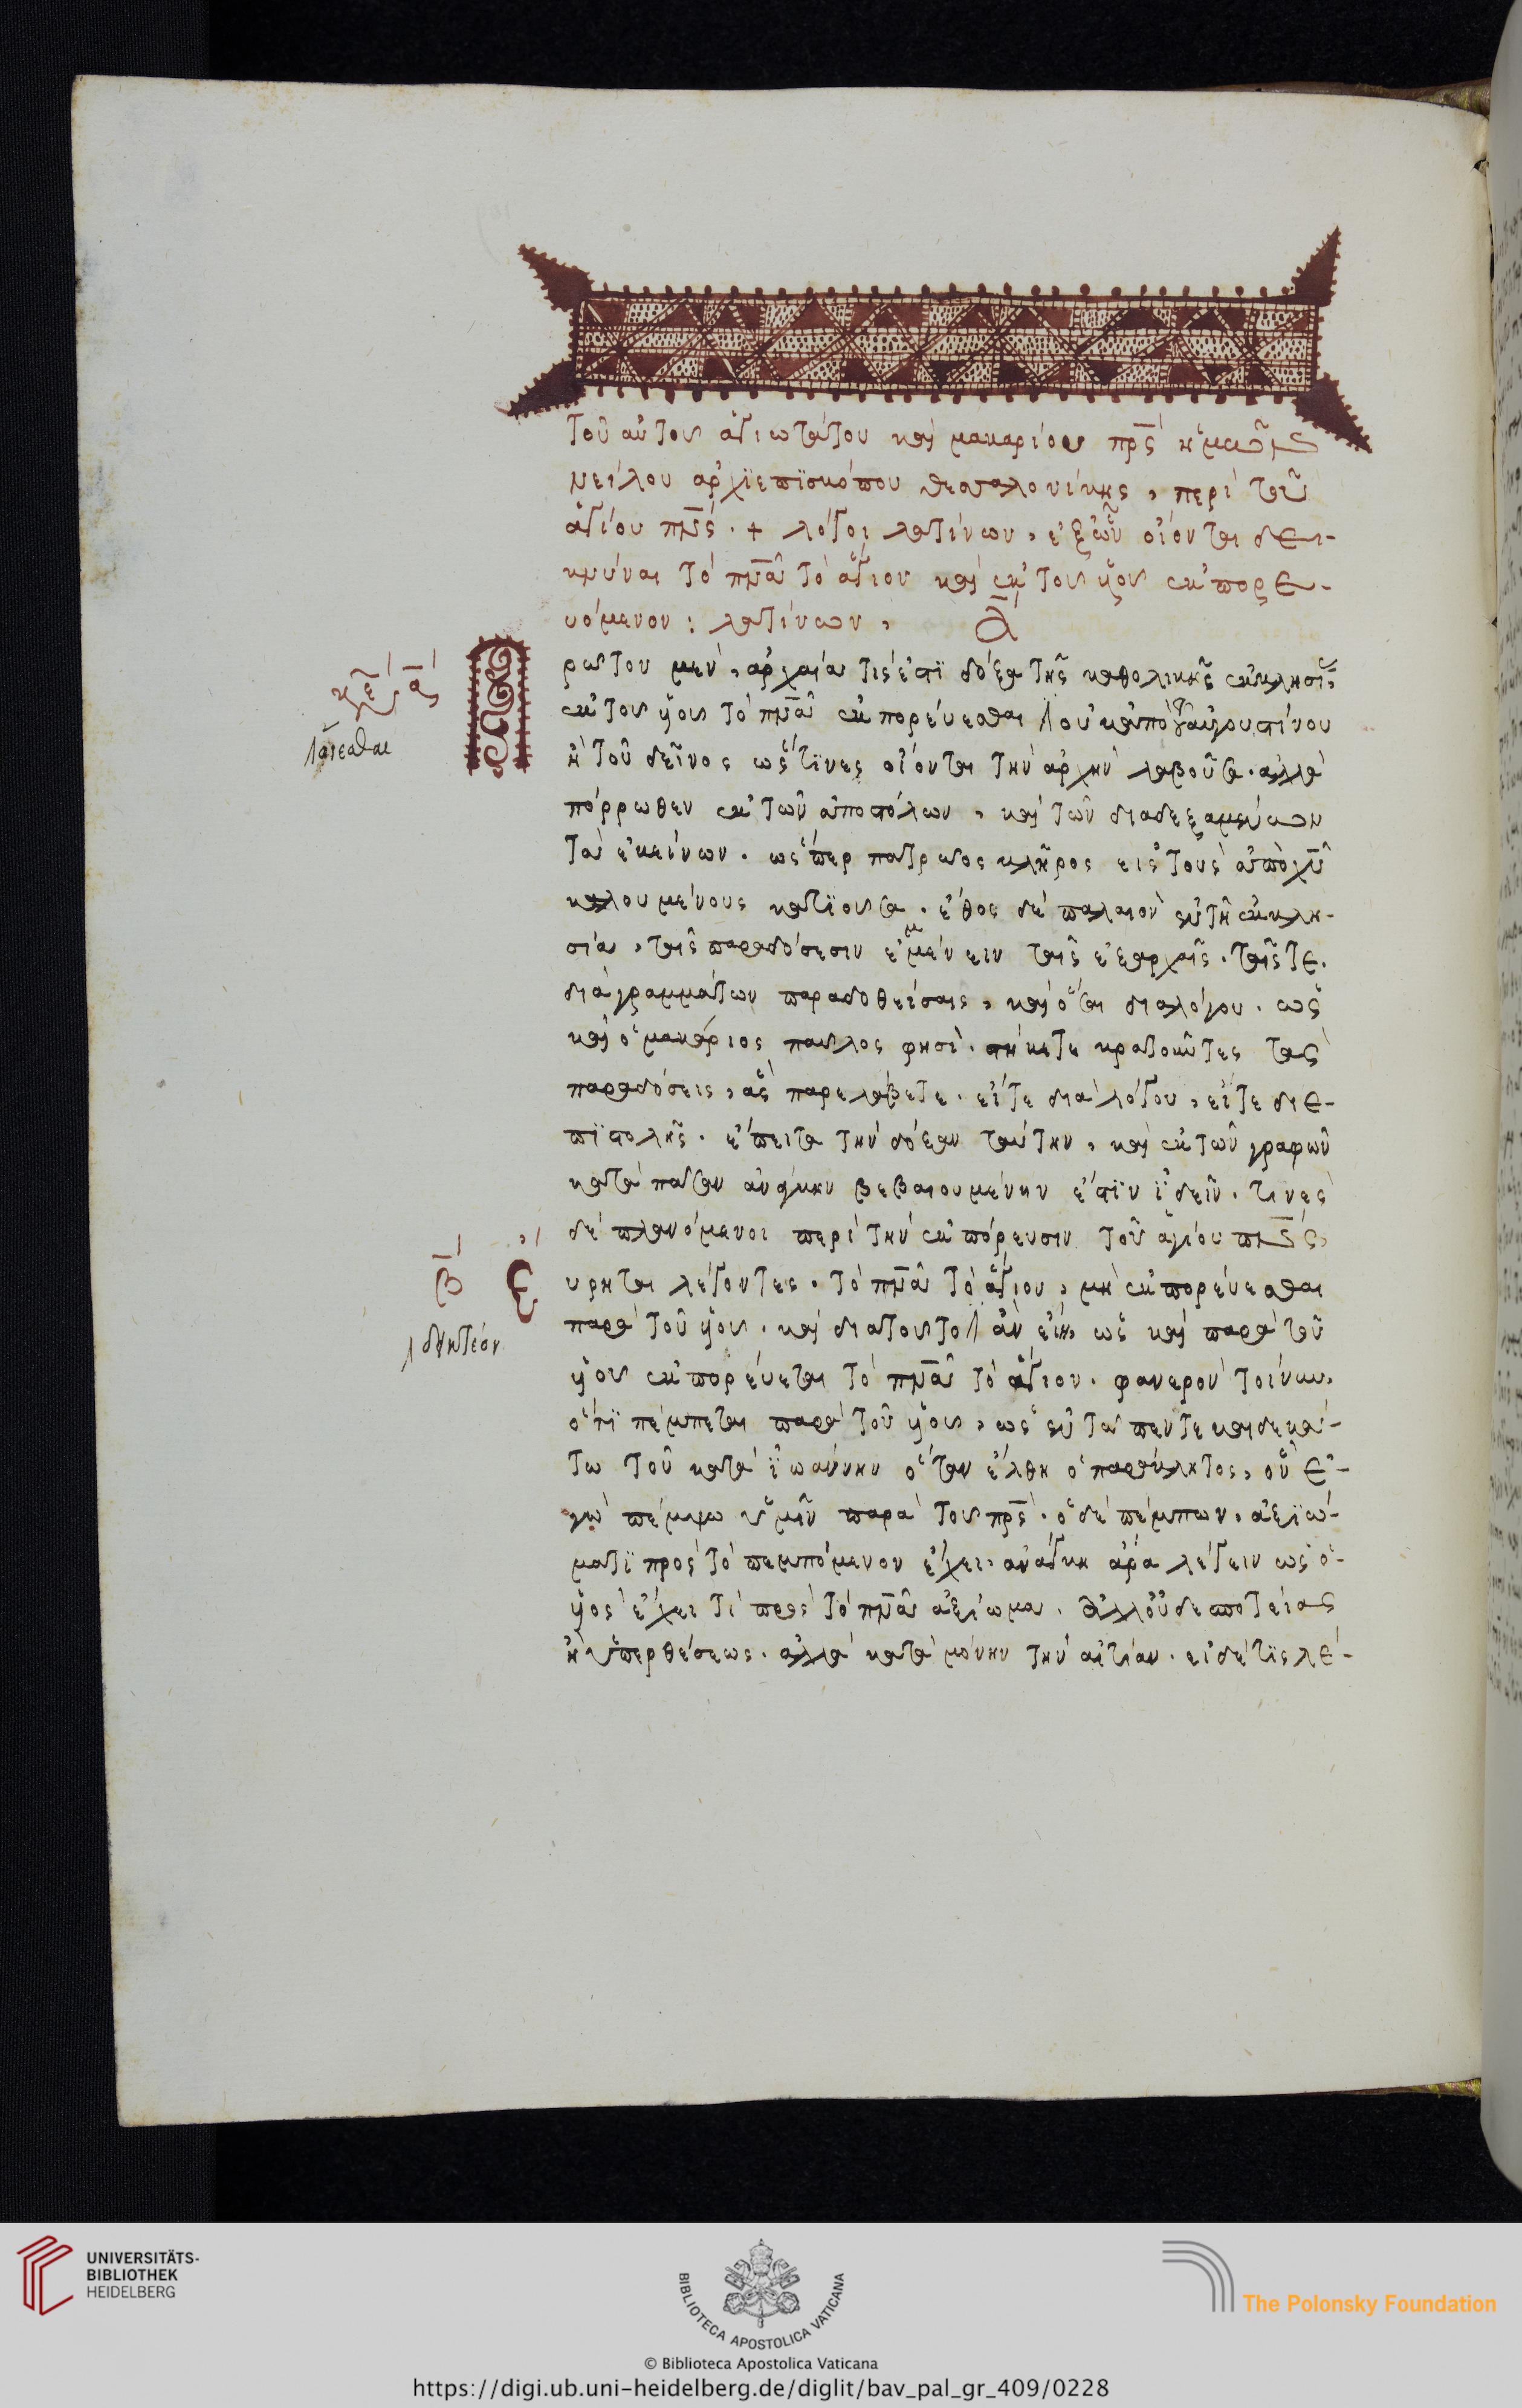 τοῦ αὐτοῦ ἁγιωτάτου καὶ μακαρίου πρς ἡμῶν
νείλου ἀρχϊεπϊσκόπου θεσσαλονίκης, περὶ τοῦ
ἁγίου πνς. + λόγοι λατίνων, ἐξ ὧν οἴονται δει-
κνύναι τὸ πνα τὸ ἅγιον καὶ ἐκ τοῦ υἱοῦ ἐκπορε-
υόμενον: λατίνων,
κε α
ρῶτον μὲν, ἀρχαία τίς ἐστϊ δόξα τῆς καθολικῆς ἐκκλησίας
ἐκ τοῦ υἱοῦ τὸ πνα ἐκπορεύεσθαι οὐκ ἀπὸ γ αὐγουστίνου
ἵστασθαι
ἢ τοῦ δεῖνος ὥς τϊνες οἴονται τὴν ἀρχὴν λαβοῦσα. ἀλλὰ
πόρρωθεν ἐκ τῶν ἀποστόλων, καὶ τῶν διαδεξαμένων
τὰ ἐκείνων. ὥσπερ πατρῶος κλῆρος εἰς τοὺς ἀπὸ χυ
καλουμένους κατϊοῦσα. ἔθος δὲ παλαιὸν ἐν τῇ ἐκκλη-
σία, ταῖς παραδόσεσιν ἐμμένειν ταῖς ἐξαρχῆς. ταῖς τε.
διὰ γραμμάτων παραδοθείσαις, καὶ ὅσαι διαλόγου. ὡς
καὶ ὁ μακάριος παῦλος φησὶ. στήκετε κρατοῦντες τὰς
παραδόσεις, ἃς παρελάβετε. εἴτε διὰ λόγου, εἴτε διε-
πϊστολῆς. ἔπειτα τὴν δόξαν ταύτην, καὶ ἐκ τῶν γραφῶν
κατὰ πᾶσαν ἀνάγκην βεβαιουμένην ἔστϊν ἰδεῖν. τινὲς
δὲ πλανόμενοι περὶ τὴν ἐκπόρευσιν τοῦ ἁγίου πνς,
β
ε υρηται λέγοντες. τὸ πνα τὸ ἅγιον, μὴ ἐκπορεύεσθαι
παρὰ τοῦ υἱοῦ. καὶ διατοῦτο ἂν εἴη ὡς καὶ παρὰ τοῦ
υἱοῦ ἐκπορεύεται τὸ πνα τὸ ἅγιον. φανερὸν τοίνυν,
ὅτϊ πέμπεται παρὰ τοῦ υἱοῦ, ὡς ἐν τῶ πεντεκαιδεκά-
τω τοῦ κατὰ ἰωάννην ὅταν ἔλθη ὁ παράκλητος, οὗ ἐ-
γὼ πέμψω ὑμῖν παρὰ τοῦ πρς. ὁ δὲ πέμπων, ἀξϊώ-
ματϊ πρὸς τὸ πεμπόμενον ἔχει, ἀνάγκη ἄρα λέγειν ὡς ὁ
υἱὸς ἔχει τὶ πρὸς τὸ πνα ἀξίωμα. ἀλλ' οὐ δεσποτείας
ἢ ὑπερθέσεως. ἀλλὰ κατὰ μόνην τὴν αἰτίαν. εἰ δέ τϊς λέ-
UNIVERSITÄTS-
BIBLIOTHEK
HEIDELBERG
BIBLIOTECA APOSTOLICA VATICANA
The Polonsky Foundation
© Biblioteca Apostolica Vaticana
https://digi.ub.uni-heidelberg.de/diglit/bav_pal_gr_409/0228